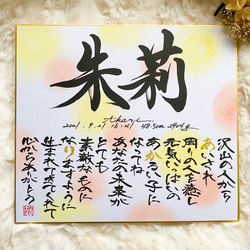 朱莉
Akari
2021.9.21 16:41 48.5cm 2904g
沢山の人から
あいされ
周りの人を癒し
元気いっぱいの
あかるい子に
なってね
あなたの未来が
とても
素敵なものに
なりますように
生まれてきてくれて
心からありがとう